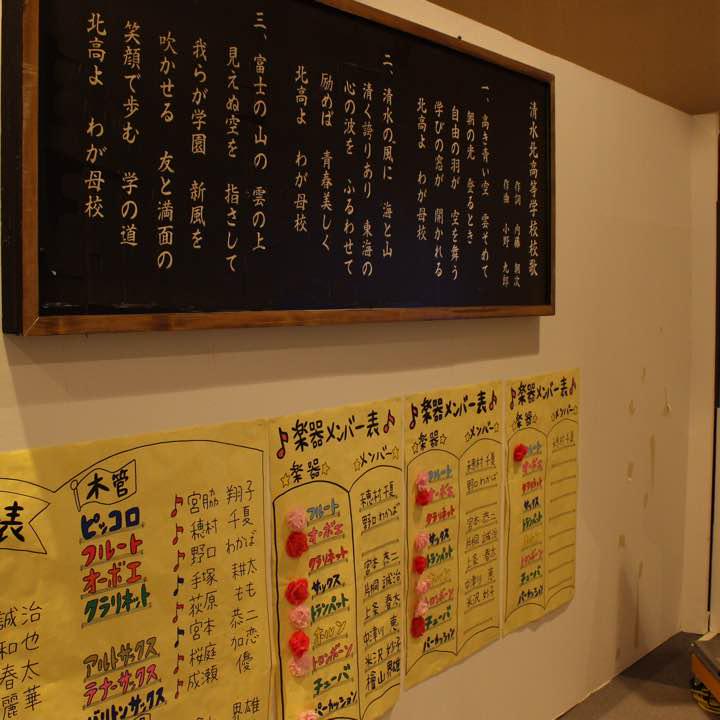 清水北高等学校校歌
作詞 内藤 朝次
作曲 小野 九郎
一、高き青い空 雲そめて
朝の光 登るとき
自由の羽が 空を舞う
学びの窓が 開かれる
北高よ わが母校
二、清水の風に 海と山
清く誇りあり 東海の
心の波を ふるわせて
励めば 青春美しく
北高よ わが母校
三、富士の山の 雲の上
見えぬ空を 指さして
我らが学園 新風を
吹かせる 友と満面の
笑顔で歩む 学の道
北高よ わが母校
表
誠治
和也
春太
麗華
木管
ピッコロ
フルート
オーボエ
クラリネット
アルトサックス
テナーサックス
バリトンサックス
宮脇 翔子
穂村 千夏
野口 わかば
手塚 耕太
荻原 もも
宮本 恭二
桜庭 加恋
成瀬 優
界雄
♪楽器メンバー表♪
☆楽器☆
☆メンバー☆
フルート
オーボエ
クラリネット
サックス
トランペット
ホルン
トロンボーン
チューバ
パーカッション
穂村 千夏
野口 わかば
宮本 恭二
片桐 誠治
上条 春太
中津川 恵
米沢 妙子
檜山 界雄
♪楽器メンバー表♪
☆楽器☆
メンバー☆
フルート
オーボエ
クラリネット
サックス
トランペット
ホルン
トロンボーン
チューバ
パーカッション
穂村 千夏
野口 わかば
宮本 恭二
片桐 誠治
上条 春太
中津川 恵
米沢 妙子
♪楽器メンバー表♪
☆楽器☆
メンバー☆
フルート
オーボエ
クラリネット
サックス
トランペット
ホルン
トロンボーン
チューバ
パーカッション
穂村 千夏